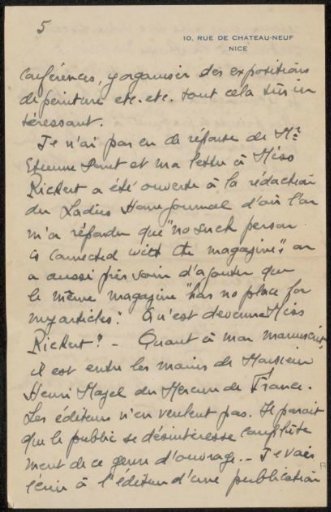 5
10, RUE DE CHATEAU-NEUF
NICE
conférences, y organiser des expositions
de peinture etc. etc. tout cela très in
téressant.
Je n'ai pas eu de réponse de Mr
Etienne et ma lettre à Miss
Rickert a été ouverte à la rédaction
du Ladies Home Journal d'où l'on
m'a répondu que "no such person
is connected with the magazine", on
a aussi pris soin d'ajouter que
le même magazine "has no place for
my articles". Qu'est devenue Miss
Rickert? - Quant à mon manuscrit,
il est entre les mains de Monsieur
Henri Mazel du Mercure de France.
Les éditeurs n'en veulent pas. Il paraît
que le public se désintéresse complète
ment de ce genre d'ouvrage... Je vais
écrire à l'éditeur d'une publication